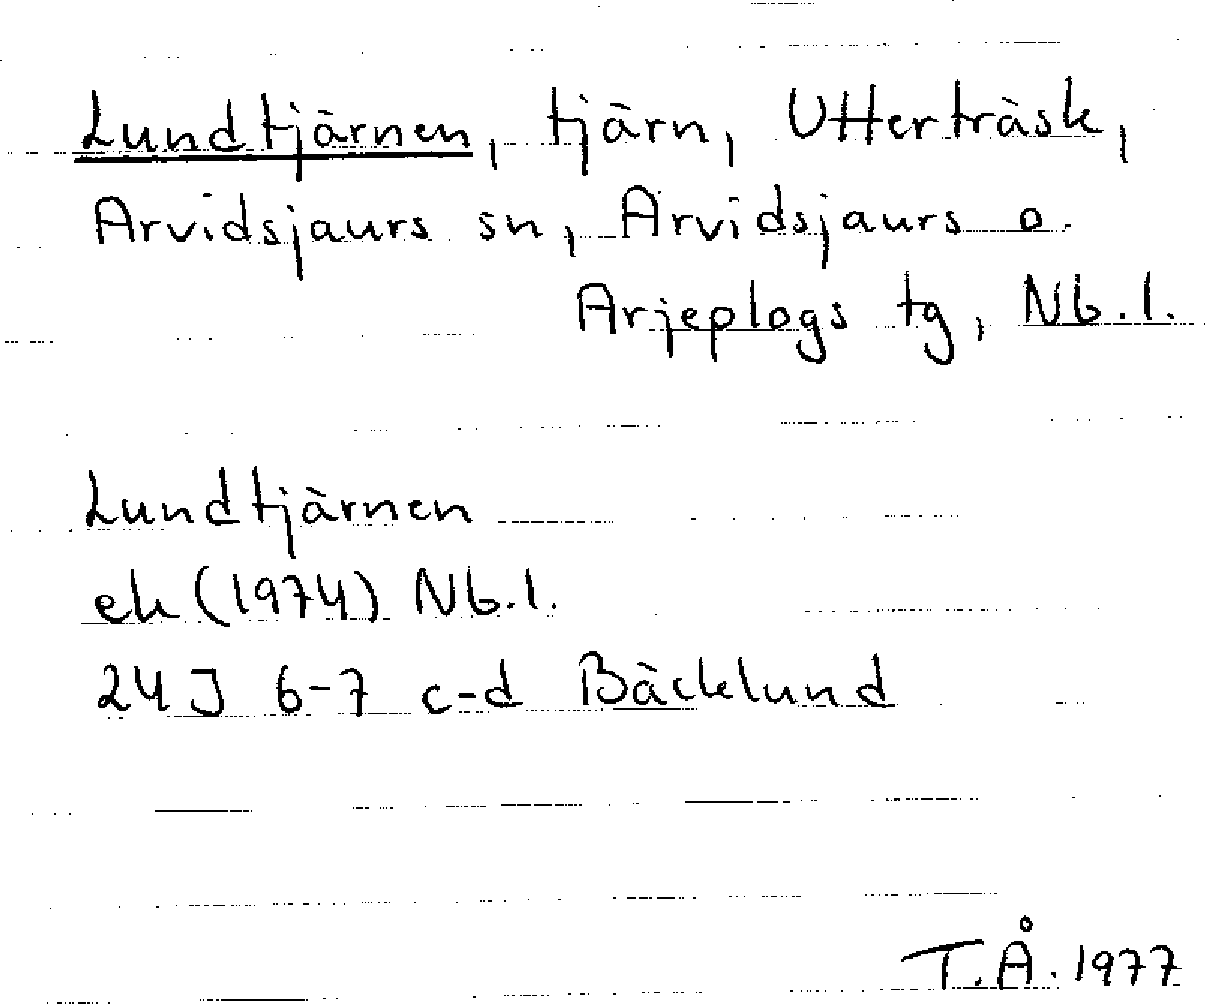 Lundtjärnen, tjärn, Utterträsk,
Arvidsjaurs sn, Arvidsjaurs o.
Arjeplogs tg, Nb.l.
Lundtjärnen
ek (1974) Nb.l.
24J 6-7 c-d Bäcklund
T.Å. 1977